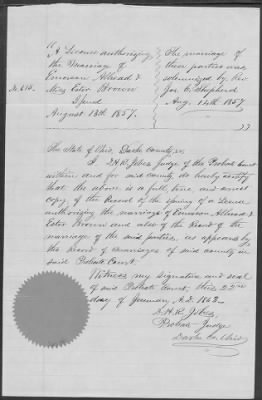 "A License authorizing
the Marriage of
Emerson Allread &
Miss Ester Brown
Issued
August 13th 1857.
The marriage of
these parties was
solemnized by Rev
Jos. C. Shepherd
Aug. 14th 1857
"
The State of Ohio, Darke County, ss.
I Judge of the Probate Court
within and for said county do hereby certify
that the above is a full, true, and correct
copy of the Record of the issuing of a License
authorizing the marriage of Emerson Allread &
Ester Brown and also of the Record of the
marriage of the said parties, as appears by
the Record of marriages of said county in
said Probate Court.
Witness my signature and seal
of said Probate Court, this 22nd
day of A.D. 1862
Probate Judge
Darke Co. Ohio